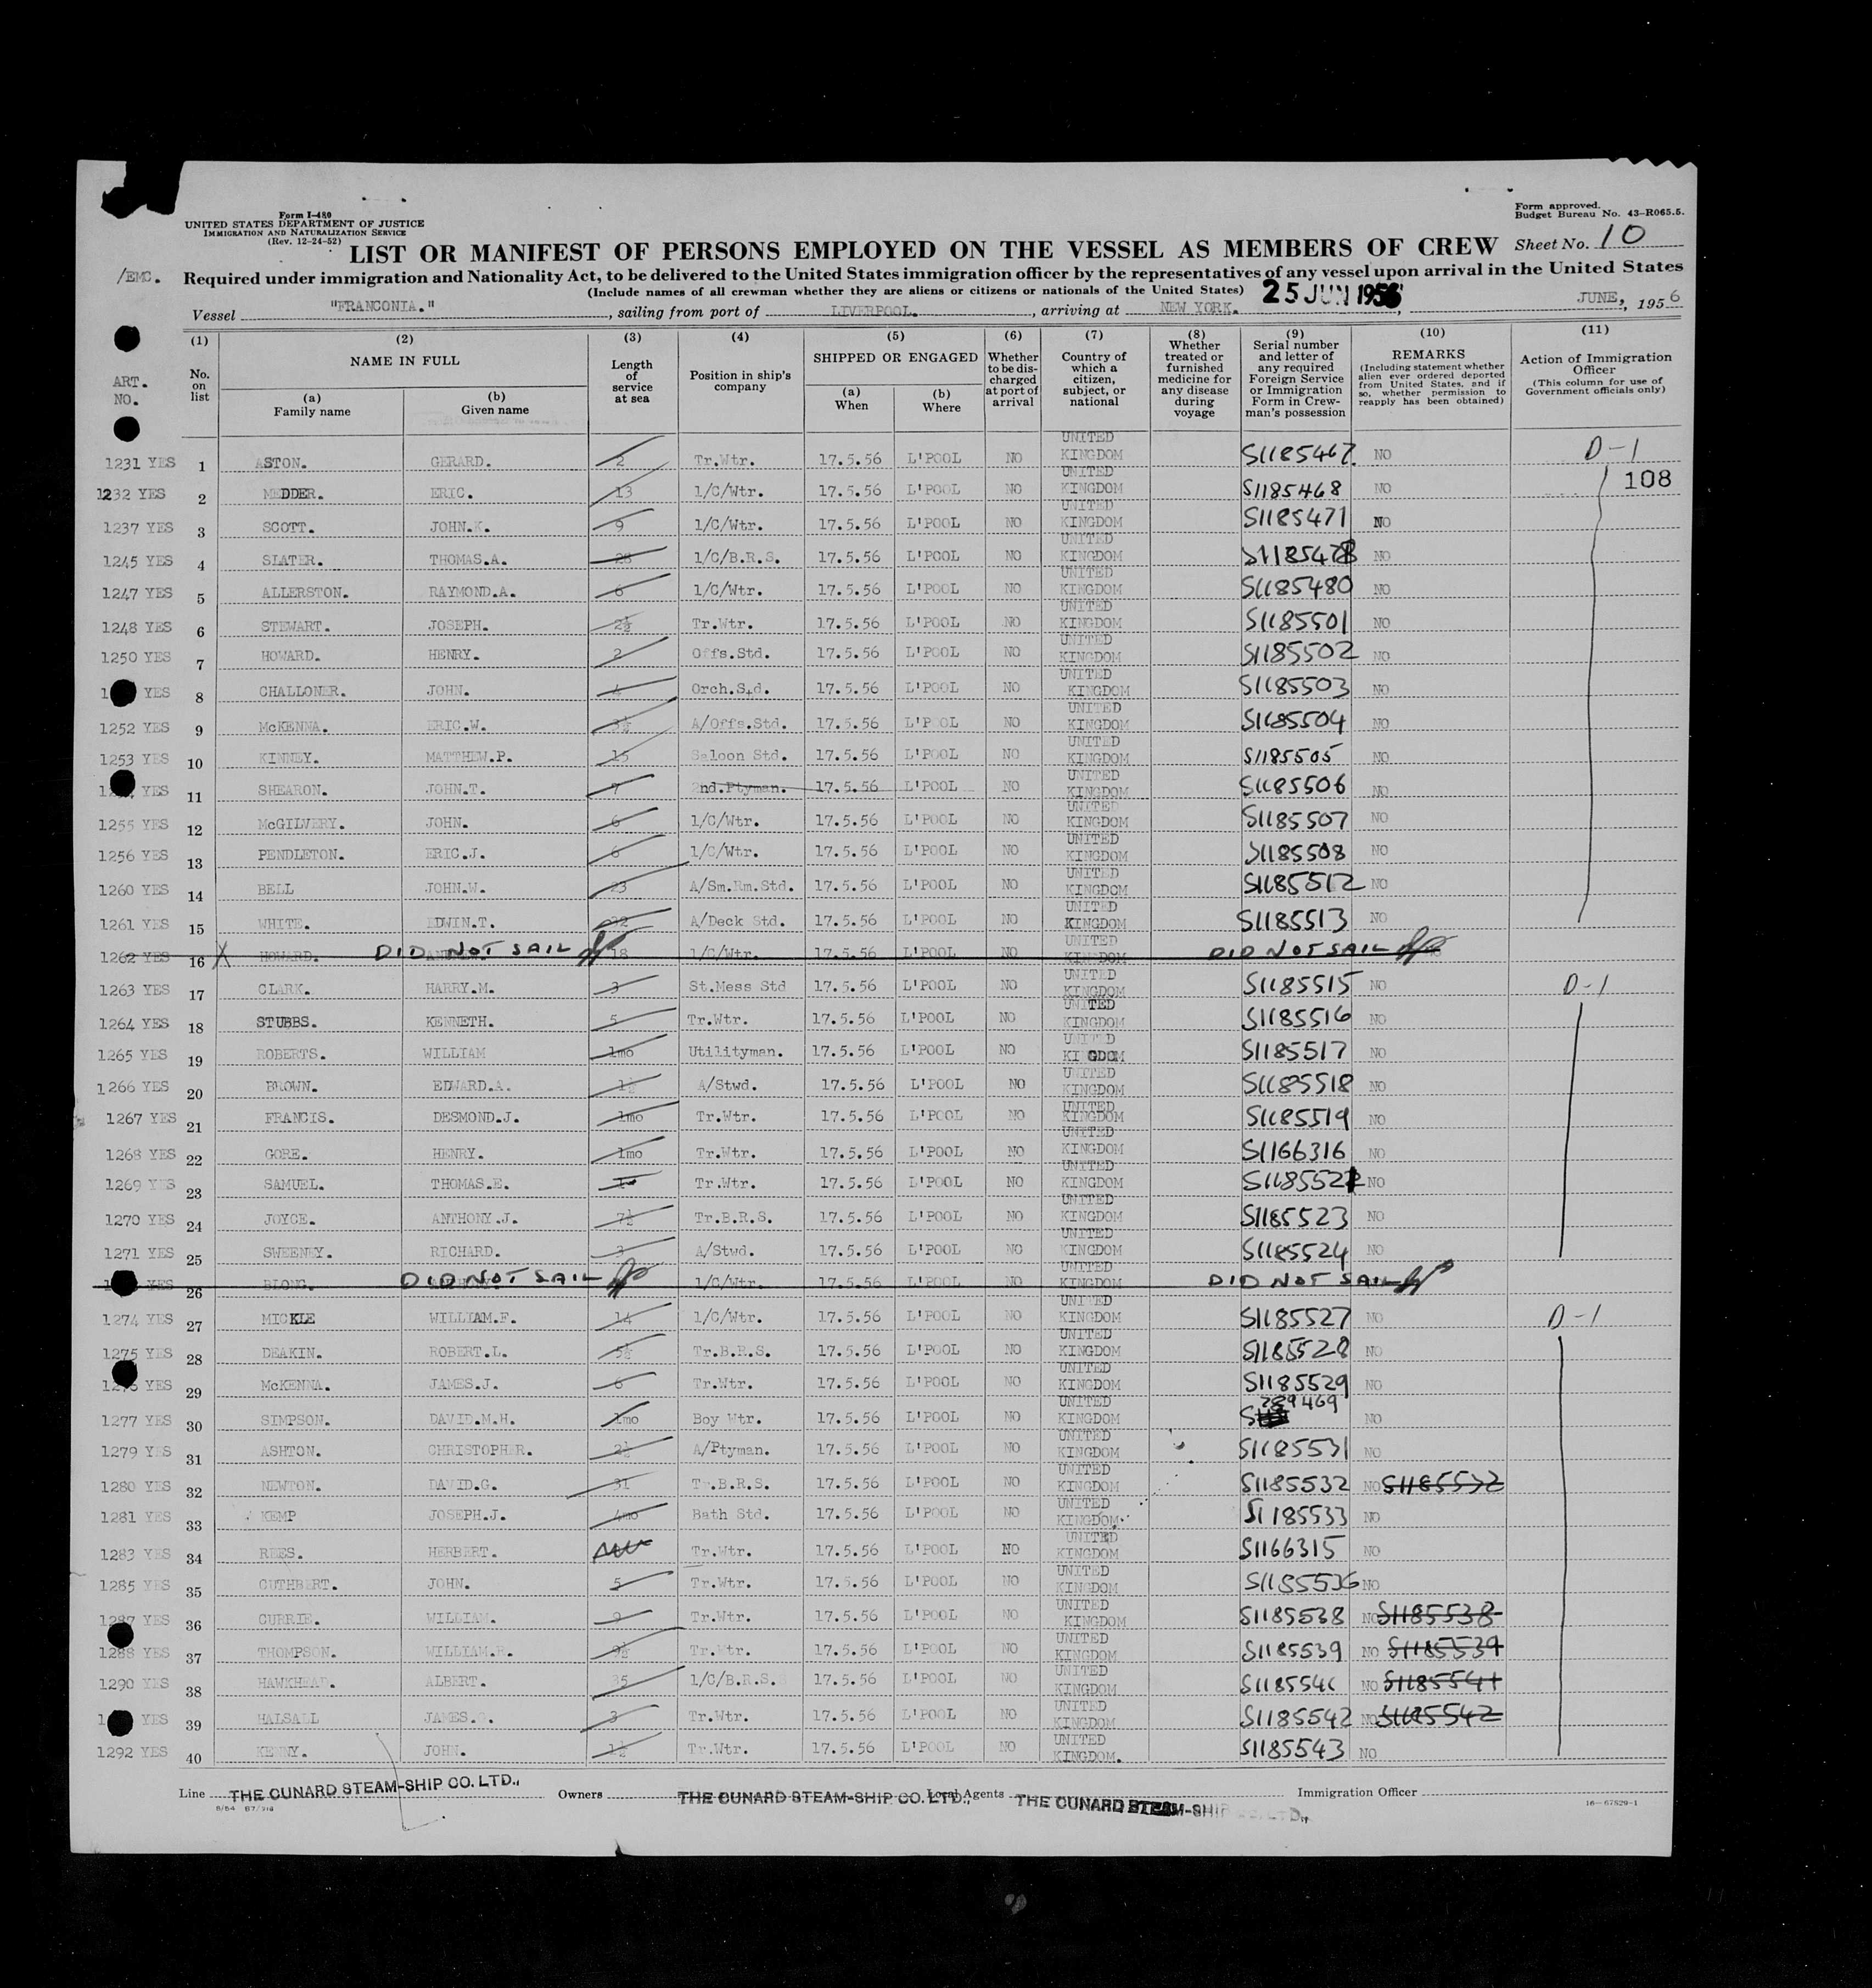 Form I-480
UNITED STATES DEPARTMENT OF JUSTICE
IMMIGRATION AND NATURALIZATION SERVICE
(Rev. 12-24-52)
Form approved.
Budget Bureau No. 43-R065.5.
LIST OR MANIFEST OF PERSONS EMPLOYED ON THE VESSEL AS MEMBERS OF CREW Sheet No. 10
/EMC. Required under immigration and Nationality Act, to be delivered to the United States immigration officer by the representatives of any vessel upon arrival in the United States
(Include names of all crewman whether they are aliens or citizens or nationals of the United States) 25 JUN 1956
Vessel "FRANCONIA.", sailing from port of LIVERPOOL., arriving at NEW YORK., JUNE, 1956
(1) (2) (3) (4) (5) (6) (7) (8) (9) (10) (11)
ART. NO. No. on list NAME IN FULL (a) Family name (b) Given name Length of service at sea Position in ship's company SHIPPED OR ENGAGED (a) When (b) Where Whether to be discharged at port of arrival Country of which a citizen, subject, or national Whether treated or furnished medicine for any disease during voyage Serial number and letter of any required Foreign Service or Immigration Form in Crewman's possession REMARKS (Including statement whether alien ever ordered deported from United States, and if so, whether permission to reapply has been obtained) Action of Immigration Officer (This column for use of Government officials only)
1231 YES 1 ASTON. GERARD. 2 Tr.Wtr. 17.5.56 L'POOL NO UNITED KINGDOM S1185467. NO D-1
1232 YES 2 MEDDER. ERIC. 13 1/C/Wtr. 17.5.56 L'POOL NO UNITED KINGDOM S1185468 NO 108
1237 YES 3 SCOTT. JOHN.K. 9 1/C/Wtr. 17.5.56 L'POOL NO UNITED KINGDOM S1185471 NO
1245 YES 4 SLATER. THOMAS.A. 28 1/C/B.R.S. 17.5.56 L'POOL NO UNITED KINGDOM S1185478 NO
1247 YES 5 ALLERSTON. RAYMOND.A. 6 1/C/Wtr. 17.5.56 L'POOL NO UNITED KINGDOM S1185480 NO
1248 YES 6 STEWART. JOSEPH. 2½ Tr.Wtr. 17.5.56 L'POOL NO UNITED KINGDOM S1185501 NO
1250 YES 7 HOWARD. HENRY. 2 Offs.Std. 17.5.56 L'POOL NO UNITED KINGDOM S1185502 NO
YES 8 CHALLONER. JOHN. 4 Orch.Std. 17.5.56 L'POOL NO UNITED KINGDOM S1185503 NO
1252 YES 9 McKENNA. ERIC.W. 3½ A/Offs.Std. 17.5.56 L'POOL NO UNITED KINGDOM S1185504 NO
1253 YES 10 KINNEY. MATTHEW.P. 15 Saloon Std. 17.5.56 L'POOL NO UNITED KINGDOM S1185505 NO
YES 11 SHEARON. JOHN.T. 7 2nd.Ptyman. 17.5.56 L'POOL NO UNITED KINGDOM S1185506 NO
1255 YES 12 McGILVERY. JOHN. 6 1/C/Wtr. 17.5.56 L'POOL NO UNITED KINGDOM S1185507 NO
1256 YES 13 PENDLETON. ERIC.J. 6 1/C/Wtr. 17.5.56 L'POOL NO UNITED KINGDOM S1185508 NO
1260 YES 14 BELL JOHN.W. 23 A/Sm.Rm.Std. 17.5.56 L'POOL NO UNITED KINGDOM S1185512 NO
1261 YES 15 WHITE. EDWIN.T. 32 A/Deck Std. 17.5.56 L'POOL NO UNITED KINGDOM S1185513 NO
1262 YES 16 X HOWARD. DID NOT SAIL 18 1/C/Wtr. 17.5.56 L'POOL NO UNITED KINGDOM DID NOT SAIL
1263 YES 17 CLARK. HARRY.M. 3 St.Mess Std 17.5.56 L'POOL NO UNITED KINGDOM S1185515 NO D-1
1264 YES 18 STUBBS. KENNETH. 5 Tr.Wtr. 17.5.56 L'POOL NO UNITED KINGDOM S1185516 NO
1265 YES 19 ROBERTS. WILLIAM 1mo Utilityman. 17.5.56 L'POOL NO UNITED KINGDOM S1185517 NO
1266 YES 20 BROWN. EDWARD.A. 1½ A/Stwd. 17.5.56 L'POOL NO UNITED KINGDOM S1185518 NO
1267 YES 21 FRANCIS. DESMOND.J. 1mo Tr.Wtr. 17.5.56 L'POOL NO UNITED KINGDOM S1185519 NO
1268 YES 22 GORE. HENRY. 1mo Tr.Wtr. 17.5.56 L'POOL NO UNITED KINGDOM S1166316 NO
1269 YES 23 SAMUEL. THOMAS.E. Tr.Wtr. 17.5.56 L'POOL NO UNITED KINGDOM S1185522 NO
1270 YES 24 JOYCE. ANTHONY.J. 7½ Tr.B.R.S. 17.5.56 L'POOL NO UNITED KINGDOM S1185523 NO
1271 YES 25 SWEENEY. RICHARD. 3 A/Stwd. 17.5.56 L'POOL NO UNITED KINGDOM S1185524 NO
YES 26 BLONG. DID NOT SAIL 1/C/Wtr. 17.5.56 L'POOL NO UNITED KINGDOM DID NOT SAIL
1274 YES 27 MICKLE WILLIAM.F. 14 1/C/Wtr. 17.5.56 L'POOL NO UNITED KINGDOM S1185527 NO D-1
1275 YES 28 DEAKIN. ROBERT.L. 5½ Tr.B.R.S. 17.5.56 L'POOL NO UNITED KINGDOM S1185528 NO
1276 YES 29 McKENNA. JAMES.J. 6 Tr.Wtr. 17.5.56 L'POOL NO UNITED KINGDOM S1185529 NO
1277 YES 30 SIMPSON. DAVID.M.H. 1mo Boy Wtr. 17.5.56 L'POOL NO UNITED KINGDOM S 289469 NO
1279 YES 31 ASHTON. CHRISTOPHER. 2½ A/Ptyman. 17.5.56 L'POOL NO UNITED KINGDOM S1185531 NO
1280 YES 32 NEWTON. DAVID.G. 31 Tr.B.R.S. 17.5.56 L'POOL NO UNITED KINGDOM S1185532 NO S1185532
1281 YES 33 KEMP JOSEPH.J. 4mo Bath Std. 17.5.56 L'POOL NO UNITED KINGDOM. S1185533 NO
1283 YES 34 REES. HERBERT. Tr.Wtr. 17.5.56 L'POOL NO UNITED KINGDOM S1166315 NO
1285 YES 35 CUTHBERT. JOHN. 5 Tr.Wtr. 17.5.56 L'POOL NO UNITED KINGDOM S1185536 NO
1287 YES 36 CURRIE. WILLIAM. 9 Tr.Wtr. 17.5.56 L'POOL NO UNITED KINGDOM S1185538 NO S1185538
1288 YES 37 THOMPSON. WILLIAM.R. 9½ Tr.Wtr. 17.5.56 L'POOL NO UNITED KINGDOM S1185539 NO S1185539
1290 YES 38 HAWKHEAD. ALBERT. 35 1/C/B.R.S. 17.5.56 L'POOL NO UNITED KINGDOM S1185541 NO S1185541
YES 39 HALSALL JAMES. 3 Tr.Wtr. 17.5.56 L'POOL NO UNITED KINGDOM S1185542 NO S1185542
1292 YES 40 KENNY. JOHN. 1½ Tr.Wtr. 17.5.56 L'POOL NO UNITED KINGDOM. S1185543 NO
Line THE CUNARD STEAM-SHIP CO. LTD., Owners THE CUNARD STEAM-SHIP CO. LTD., Local Agents THE CUNARD STEAM-SHIP CO. LTD., Immigration Officer
16-67829-1